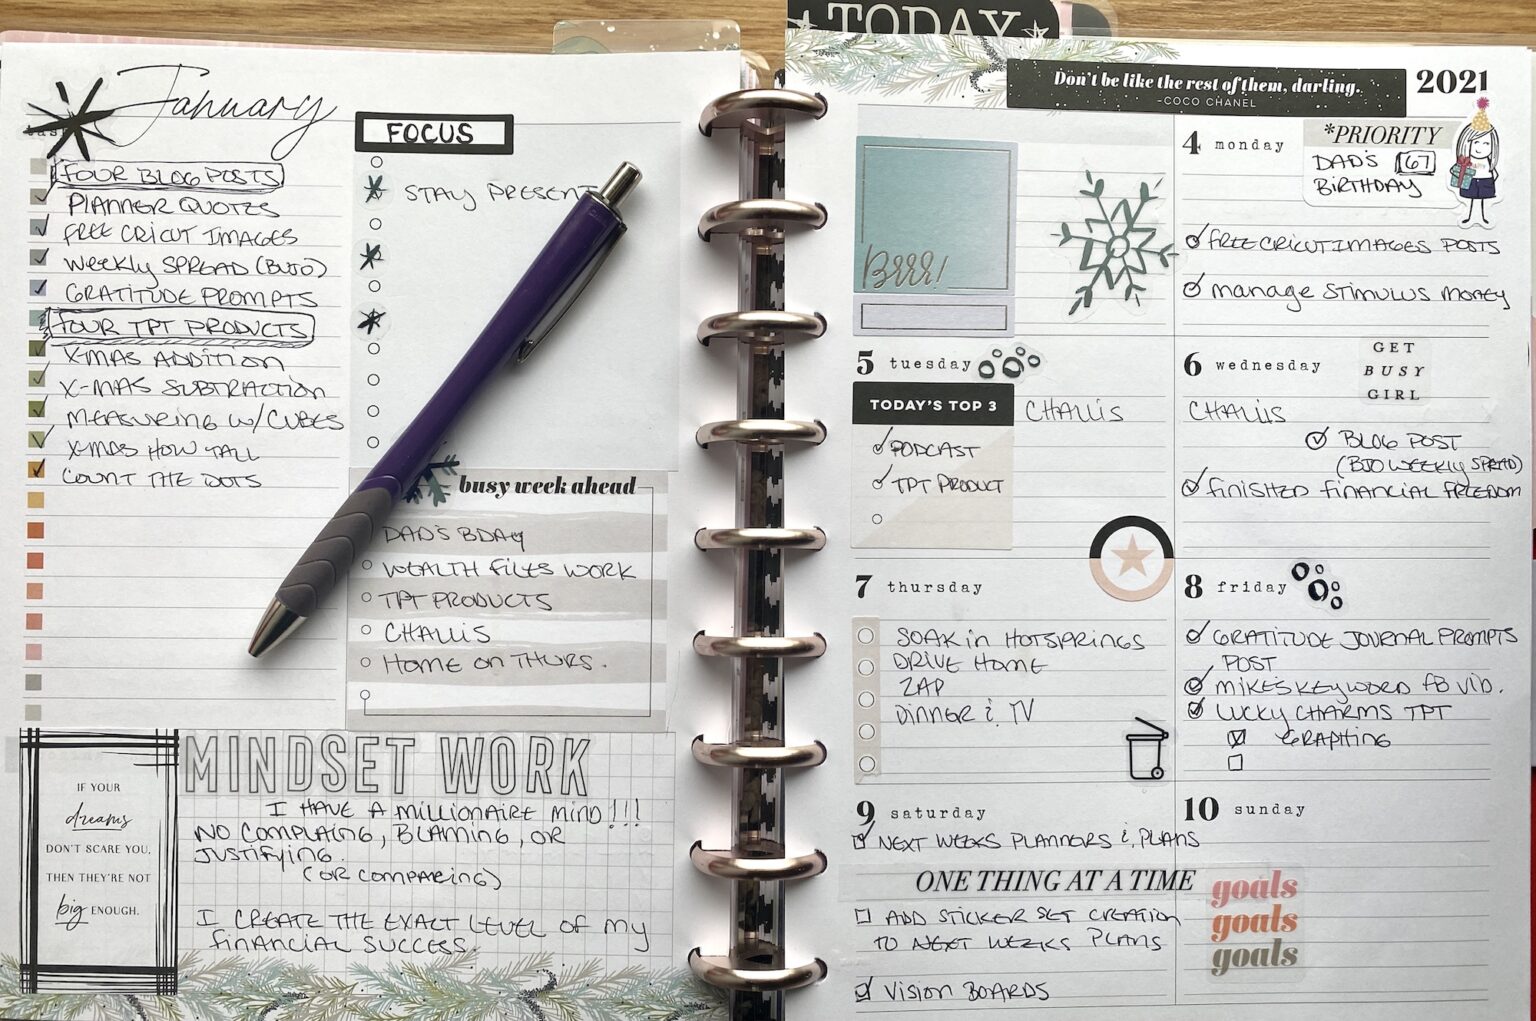 January
FOCUS
FOUR BLOG POSTS
PLANNER QUOTES
FREE CRICUT IMAGES
WEEKLY SPREAD (BUJO)
GRATITUDE PROMPTS
FOUR TPT PRODUCTS
X-MAS ADDITION
X-MAS SUBTRACTION
MEASURING W/CUBES
X-MAS HOW TALL
COUNT THE DOTS
STAY PRESENT
busy week ahead
DAD'S BDAY
WEALTH FILES WORK
TPT PRODUCTS
CHALLIS
HOME ON THURS.
IF YOUR
dreams
DON'T SCARE YOU,
THEN THEY'RE NOT
big ENOUGH.
MINDSET WORK
I HAVE A MILLIONAIRE MIND!!!
NO COMPLAING, BLAMING, OR
JUSTIFYING.
(OR COMPARING)
I CREATE THE EXACT LEVEL OF MY
FINANCIAL SUCCESS.
TODAY
Don't be like the rest of them, darling.
-COCO CHANEL
2021
Brrr!
4 monday
*PRIORITY
DAD'S 67
BIRTHDAY
FREE CRICUT IMAGES POSTS
MANAGE STIMULUS MONEY
5 tuesday
TODAY'S TOP 3
CHALLIS
PODCAST
TPT PRODUCT
6 wednesday
GET
BUSY
GIRL
CHALLIS
BLOG POST
(BJO WEEKLY SPREAD)
FINISHED FINANCIAL FREEDOM
7 thursday
SOAK IN HOTSPRINGS
DRIVE HOME
ZAP
DINNER & TV
8 friday
GRATITUDE JOURNAL PROMPTS
POST
MIKE'S KEYWORD FB VID.
LUCKY CHARMS TPT
GRAPHING
9 saturday
NEXT WEEKS PLANNERS & PLANS
ONE THING AT A TIME
ADD STICKER SET CREATION
TO NEXT WEEKS PLANS
VISION BOARDS
10 sunday
goals
goals
goals